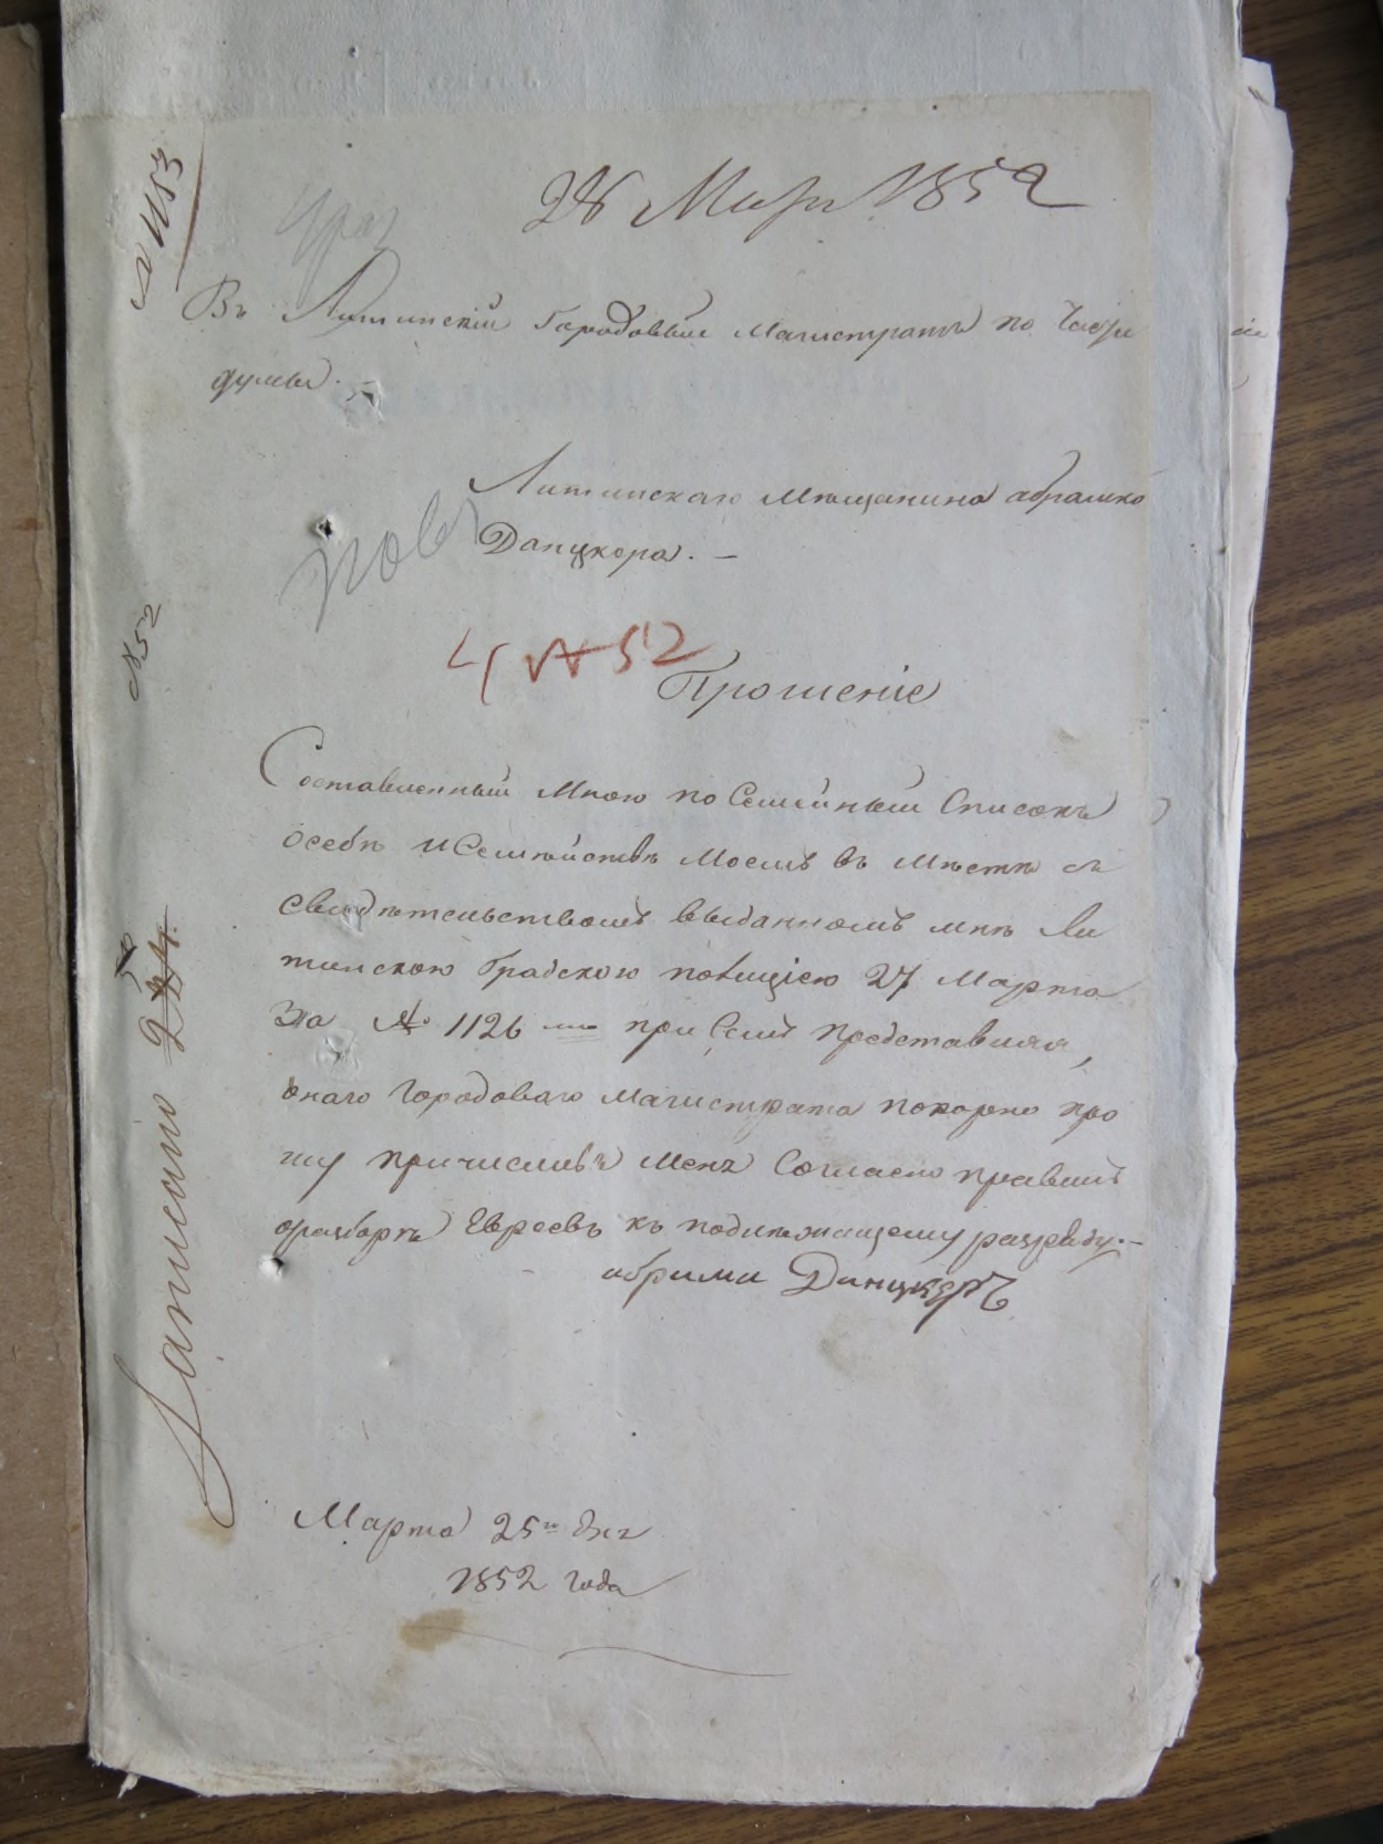 № 1183
28 Мар 1852
Въ Литинскій Городовый Магистратъ по Части
думы. –
Литинскаго Мѣщанина абрамка
Данцкера. –
пов
4 № 52
№ 52
Прошеніе
Составленный Мною по Семейный Списокъ
осебѣ и Семѣйствѣ Моемъ въ Мѣстѣ съ
свидѣтельствомъ выданномъ мнѣ Ли
тинскою Градскою полиціею 27 Марта
За № 1126 при Семъ представляя,
онаго Городоваго Магистрата покорно про
шу причислить Меня Согласно правилъ
оразборѣ Евреевъ къ подлежащему разряду. –
абрамъ Данцкеръ
Марта 25 дня
1852 года
Записано